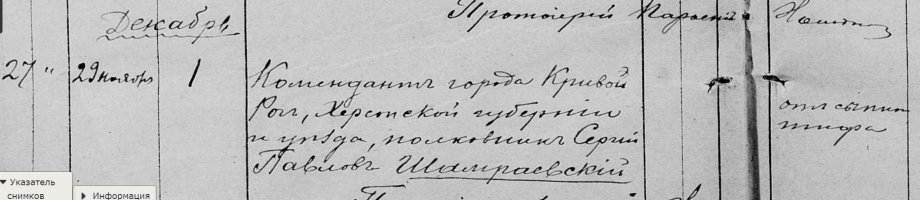 Протоіерей
Декабрь
27 "
29 ноября
1
Комендантъ города Кривой
Рогъ, Херсонской губерніи
и уѣзда, полковникъ Сергій
Павловъ Шамраевскій
отъ сыпно
тифа
Указатель
снимков
Информация